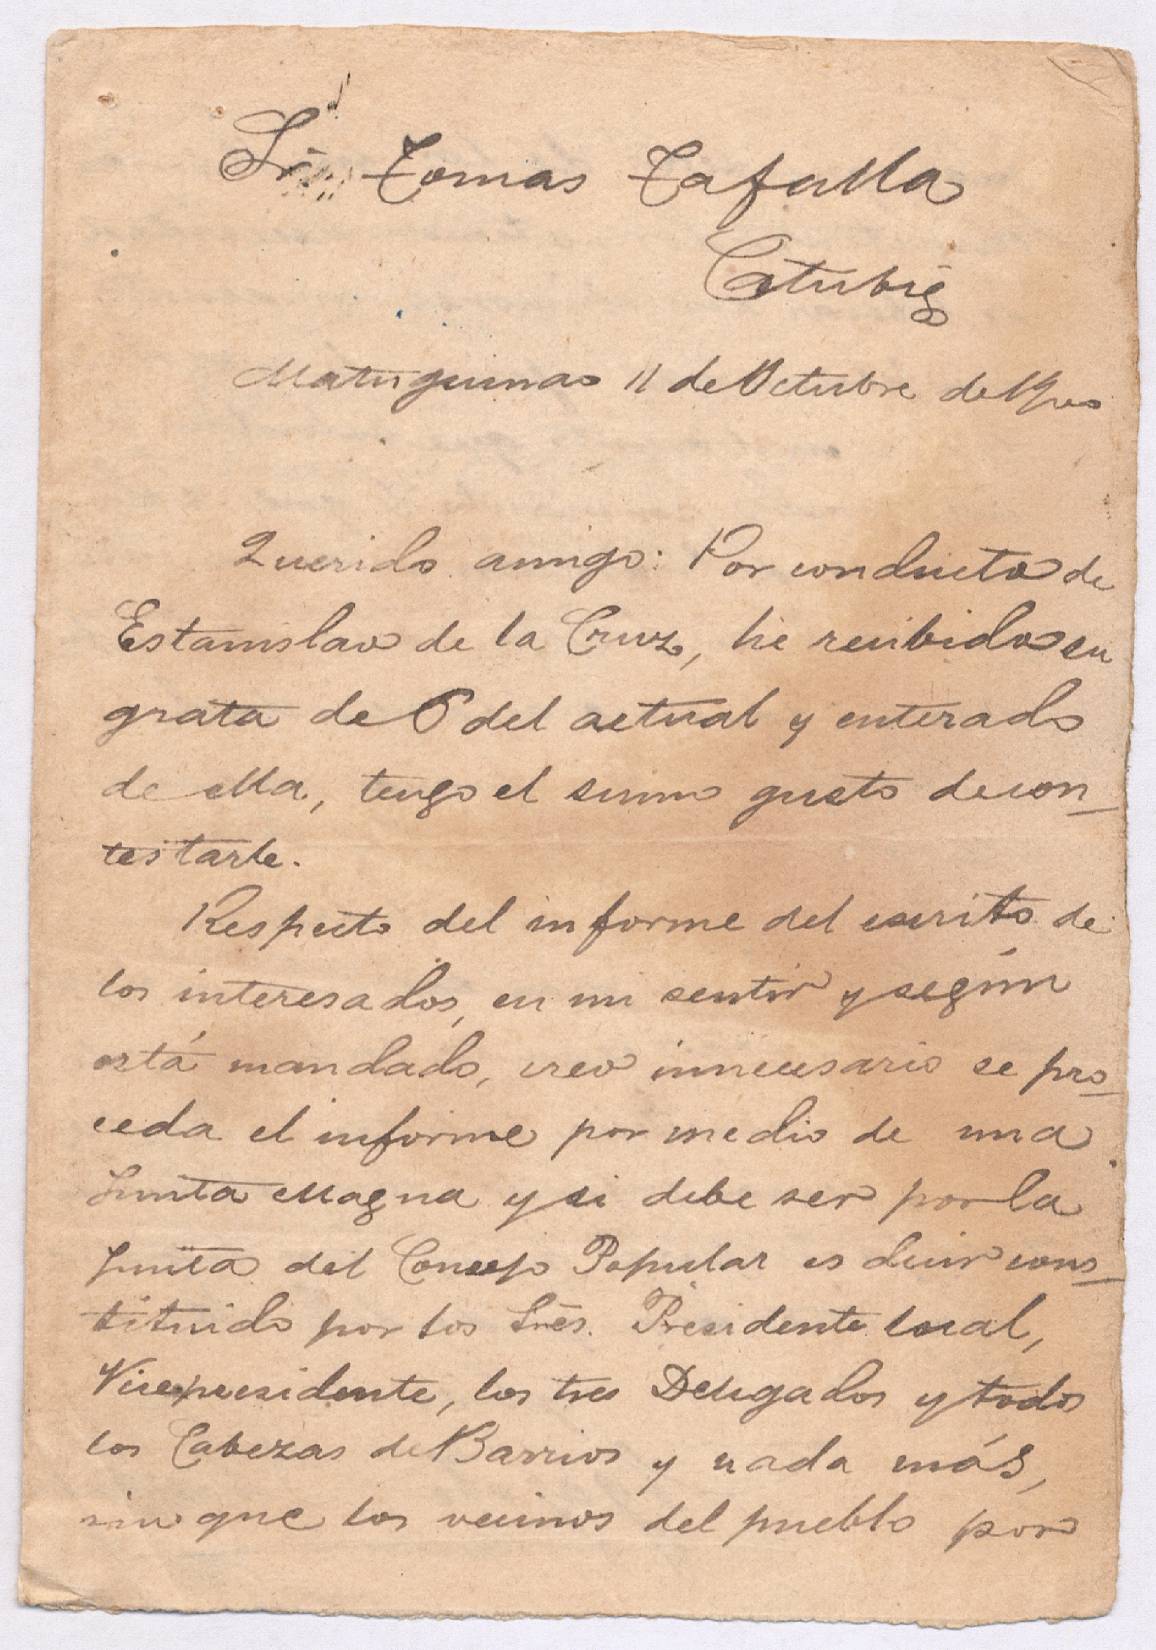 Sr. Tomas Tafalla
Catubig
Matuguinao 11 de Octubre de 1900
Querido amigo: Por conducto de
Estanislao de la Cruz, he recibido su
grata de 6 del actual y enterado
de ella, tengo el sumo gusto de con-
testarle.
Respecto del informe del escrito de
los interesados, en mi sentir y según
está mandado, creo innecesario se pro-
ceda el informe por medio de una
Junta Magna y si debe ser por la
Junta del Concejo Popular es decir cons-
tituido por los Sres. Presidente local,
Vicepresidente, los tres Delegados y todos
los Cabezas de Barrios y nada más,
sin que los vecinos del pueblo por